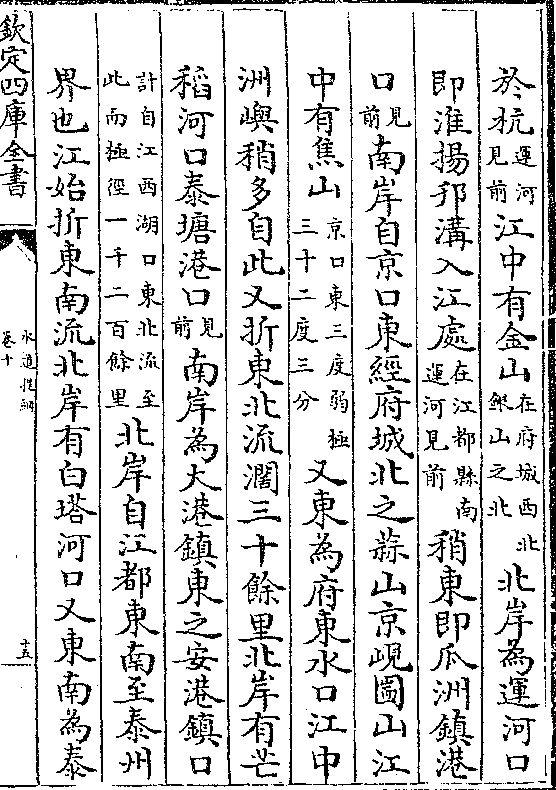 於杭運河見前江中有金山在府城西北銀山之北北岸為運河口
即淮揚邗溝入江處在江都縣南運河見前稍東即瓜洲鎮港
口見前南岸自京口東經府城北之蒜山京峴圌山江
中有焦山京口東三度弱極三十二度三分又東為府東水口江中
洲嶼稍多自此又折東北流濶三十餘里北岸有芒
稻河口泰塘港口見前南岸為大港鎮東之安港鎮口
計自江西湖口東北流至此而極徑一千二百餘里北岸自江都東南至泰州
界也江始折東南流北岸有白塔河口又東南為泰
欽定四庫全書
水道提綱
卷十
十五